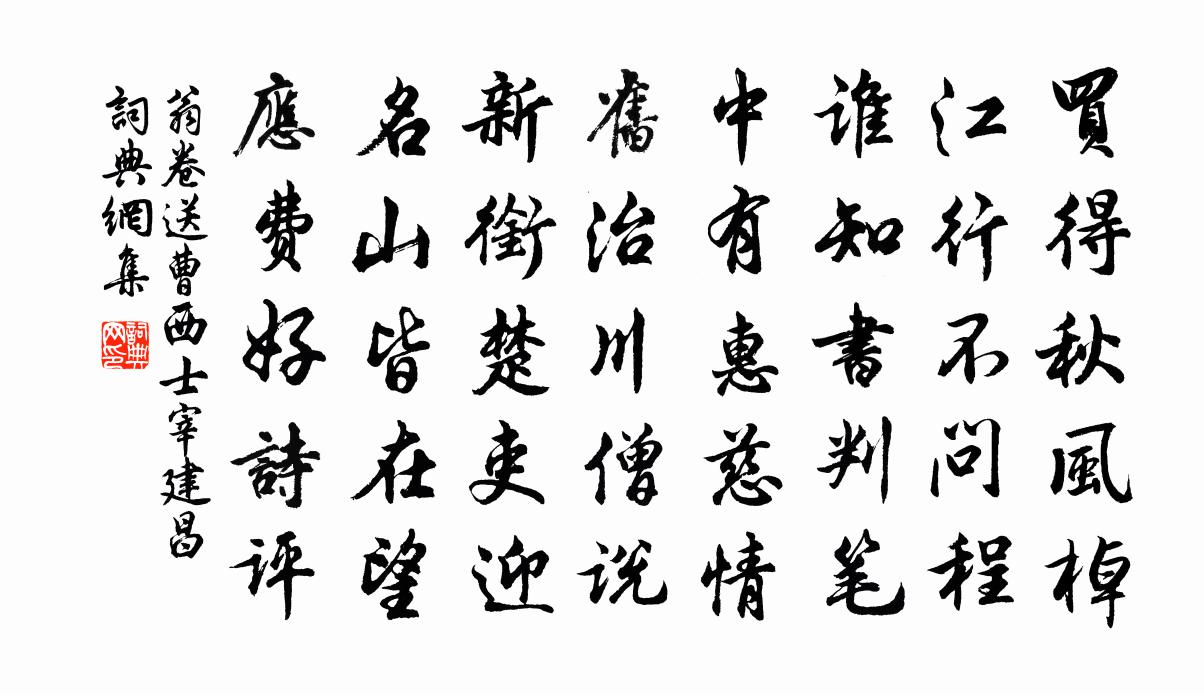 買得秋風棹
江行不問程
誰知書判笔
中有惠慈情
舊治川僧説
新銜楚吏迎
名山皆在望
應費好詩評
翁卷送曹西士宰建昌
詞典網集
詞典
网印